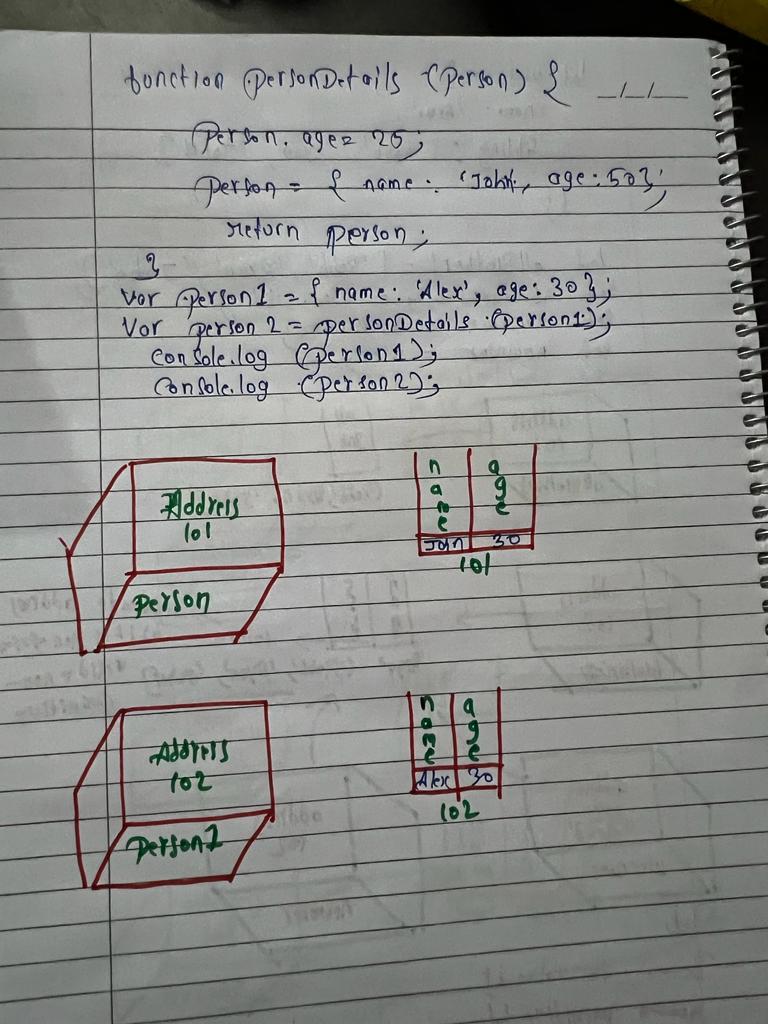 function personDetails (person) {
__/__/__
person.age = 25;
person = { name: 'John', age: 50};
return person;
}
var person1 = { name: 'Alex', age: 30};
Var person2 = personDetails (person1);
console.log (person1);
Console.log (person2);
Address
101
person
name age
John 30
101
Address
102
person1
name age
Alex 30
102